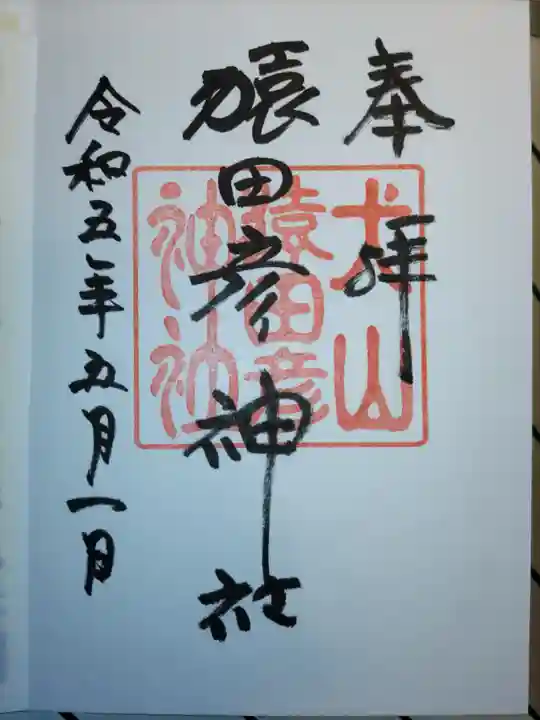 奉拝
猿田彦神社
令和五年五月一日
犬山
猿田彦
神社